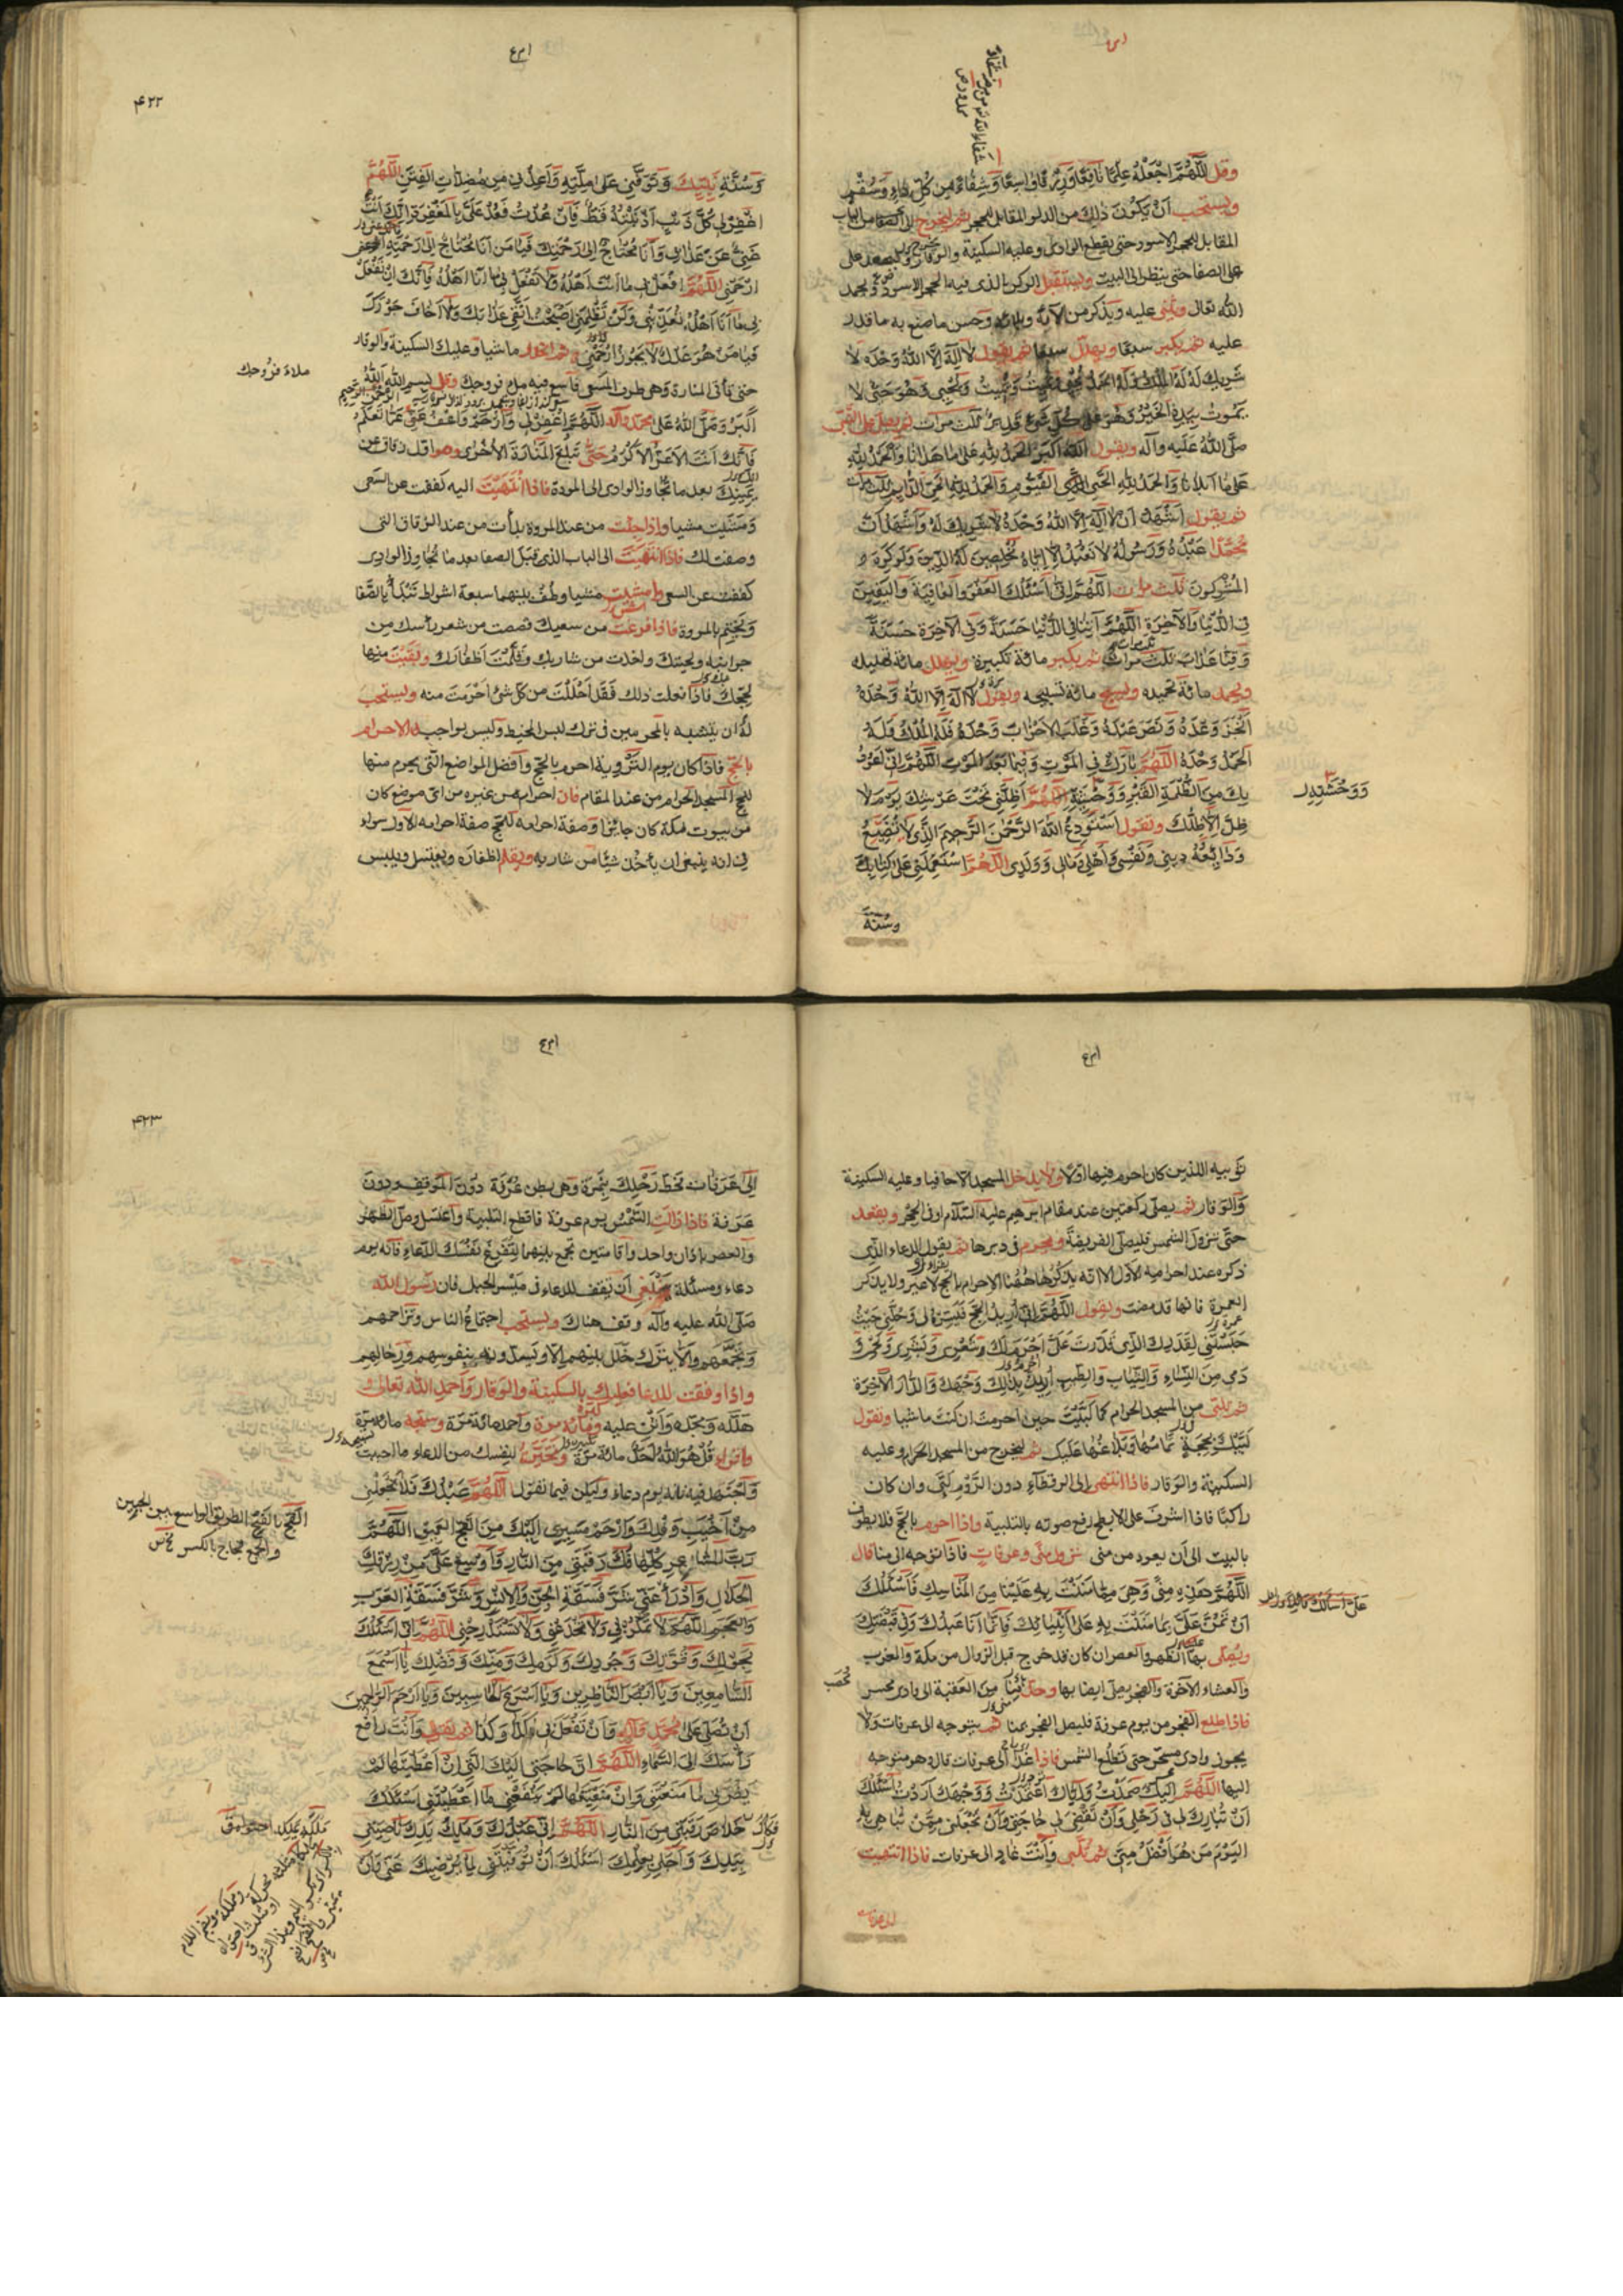 وقل اللَّهُمَّ اجْعَلْهُ عِلْمًا نَافِعًا وَرِزْقًا وَاسِعًا وَشِفَاءً مِنْ كُلِّ دَاءٍ وَسُقْمٍ
ويستحب اَنْ يَكُونَ ذلِكَ من الدلو المقابل للحجر ثم ليخرج الى الصفا من الباب
المقابل للحجر الاسود حتى يقطع الوادى وعليه السكينة والوقار وليصعد على
على الصفا حتى ينظر الى البيت ويستقبل الركن الذى فيه الحجر الاسود ويحمد
الله تعالى ويثنى عليه ويذكر من الآئه وبلائه وحسن ما صنع به ما قدر
عليه ثم يكبر سبعًا ويهلل سبعًا ثم يقول لا اله الا الله وحده لا
شريك له له الملك وله الحمد يحيى ويميت ويميت ويحيى وهو حىّ لا
يموت بيده الخير وهو على كل شىء قدير ثلث مرات ثم يصلى على النبى
صلى الله عليه وآله ويقول الله اكبر الحمد لله على ما هدانا والحمد لله
على ما ابلانا والحمد لله الحى القيوم والحمد لله الحى الدايم ثلث مرات
ثم يقول اشهد ان لا اله الا الله وحده لا شريك له واشهد ان
محمدا عبده ورسوله لا نعبد الا اياه مخلصين له الدين ولو كره
المشركون ثلث مرات اللهم انى اسئلك العفو والعافية واليقين
فى الدنيا والآخرة اللهم آتنا فى الدنيا حسنة وفى الآخرة حسنة
وقنا عذاب ثلث مرات ثم يكبر مائة تكبيرة ويهلل مائة تهليل
ويحمد مائة تحميد ويسبح مائة تسبيحه ويقول لا اله الا الله وحده
انجز وعده ونصر عبده وغلب الاحزاب وحده فله الملك وله
الحمد وحده اللهم بارك لى فى الموت وفيما بعد الموت اللهم انى اعوذ
بك من ظلمة القبر ووحشته اللهم اظلنى تحت عرشك يوم لا
ظل الا ظلك ويقول استودع الله الرحمن الرحيم الذى لا تضيع
ودائعه دينى ونفسى واهلى ومالى وولدى اللهم استعملنى على كتابك
وسنة
۴۲۲
وسنة نبيك وتوفنى على ملته واعذنى من مضلات الفتن اللهم
اغفر لى كل ذنب اذنبته قط فان عدت فعد على بالمغفرة انك انت
غنى عن عذابى وانا محتاج الى رحمتك فيا من انا محتاج الى رحمته
ارحمنى اللهم افعل بى ما انت اهله ولا تفعل بى ما انا اهله فانك ان تفعل
بى ما انا اهله تعذبنى ولن تظلمنى اصبحت اتقى عذابك ولا اخاف جورك
فيا من هو عدل لا يجور ارحمنى ثم انحدر ماشيا وعليك السكينة والوقار
حتى تأتى المنارة وهى طرف المسعى فاسع فيه ملء فروجك وقل بسم الله الله
اكبر وصلى الله على محمد وآله اللهم اغفر لى وارحم واعف عنى عما تعلم
فانك انت الاعز الاكرم حتى تبلغ المنارة الاخرى وهو اول زقاق عن
يمينك بعد ما تجاوز الوادى الى المروة فاذا انتهيت اليه كففت عن السعى
ومشيت مشيا واذا جئت من عند المروة بدأت من عند الزقاق التى
وصفت لك فاذا انتهيت الى الباب الذى قبل الصفا بعد ما تجاوز الوادى
كففت عن السعى وامشيت مشيا وطف بينهما سبعة اشواط تبدأ بالصفا
وتختم بالمروة فاذا فرغت من سعيك قصصت من شعر رأسك من
جوانبه ولحيتك واخذت من شاربك وقلمت اظفارك وبقيت منها
لحجك فاذا فعلت ذلك فقد احللت من كل شىء احرمت منه ويستحب
له ان يتشبه بالمحرمين فى ترك لبس المخيط وليس بواجب الاحرام
بالحج فاذا كان يوم التروية احرم بالحج وافضل المواضع التى يحرم منها
للحج المسجد الحرام من عند المقام فان احرم من غيره من اى موضع كان
من بيوت مكة كان جائزا وصفة احرامه للحج صفة احرامه الاول سواء
فى انه ينبغى ان يأخذ شيئا من شاربه ويقلم اظفاره ويغتسل ويلبس
ملاء فروجك
ثوبيه اللذين كان احرم فيهما اولا ولا يدخل المسجد الا حافيا وعليه السكينة
والوقار ثم يصلى ركعتين عند مقام ابرهيم عليه السلام او فى الحجر ويقعد
حتى تزول الشمس فليصل الفريضة ويحرم فى دبرها ثم يقول الدعاء الذى
ذكره عند احرامه الاول الا انه يذكر هاهنا الاحرام بالحج لا غير ولا يذكر
العمرة فانها قد مضت ويقول اللهم انى اريد الحج فيسره لى وحلنى حيث
حبستنى لقدرك الذى قدرت على احرم لك شعرى وبشرى ولحمى و
دمى من النساء والثياب والطيب اريد بذلك وجهك والدار الآخرة
ثم تلبى من المسجد الحرام كما لبيت حين احرمت ان كنت ماشيا وتقول
لبيك بحجة تمامها وبلاغها عليك ثم ليخرج من المسجد الحرام وعليه
السكينة والوقار فاذا انتهى الى الرقطاء دون الردم لبى وان كان
راكبا فاذا اشرف على الابطح رفع صوته بالتلبية واذا احرم بالحج فلا يطوف
بالبيت الى ان يعود من منى نزول منى وعرفات فاذا توجه الى منا قال
اللهم هذه منى وهى مما مننت به علينا من المناسك فاسئلك
ان تمن على بما مننت به على انبيائك فانما انا عبدك وفى قبضتك
ويصلى بها الظهر والعصر ان كان قد خرج قبل الزوال من مكة والمغرب
والعشاء الآخرة والفجر يصلى ايضا بها وحد منى من العقبة الى وادى محسر
فاذا طلع الفجر من يوم عرفة فليصل الفجر بمنا ثم يتوجه الى عرفات ولا
يجوز وادى محسر حتى تطلع الشمس فاذا غدا الى عرفات قال وهو متوجه
اليها اللهم اليك صمدت واياك اعتمدت ووجهك اردت اسئلك
ان تبارك لى فى رحلى وان تقضى لى حاجتى وان تجعلنى ممن تباهى به
اليوم من هو افضل منى ثم تلبى وانت غاد الى عرفات فاذا انتهيت
الى عرفات
۴۲۳
الى عرفات فحط رحلك بنمرة وهى بطن عرنة دون الموقف ودون
عرفة فاذا زالت الشمس يوم عرفة فاقطع التلبية واغتسل وصل الظهر
والعصر باذان واحد واقامتين تجمع بينهما لتفرغ نفسك للدعاء فانه يوم
دعاء ومسئلة وينبغى ان تقف للدعاء فى ميسر الجبل فان رسول الله
صلى الله عليه وآله وقف هناك ويستحب اجتماع الناس وتزاحمهم
وتجمعهم والا يترك خلل بينهم الا ويسدونه بنفوسهم ورحالهم
واذا وقفت للدعا فعليك بالسكينة والوقار واحمد الله تعالى و
هلله ومجده واثن عليه وكبره مائة مرة واحمد مائة مرة وسبحه مائة مرة
واقراء قل هو الله احد مائة مرة وتخير لنفسك من الدعاء ما احببت
واجتهد فيه فانه يوم دعاء وليكن فيما تقول اللهم عبدك فلا تجعلنى
من اخيب وفدك وارحم مسيرى اليك من الفج العميق اللهم
رب المشاعر كلها فك رقبتى من النار واوسع على من رزقك
الحلال وادرأ عنى شر فسقة الجن والانس وشر فسقة العرب
والعجم اللهم لا تمكر بى ولا تخدعنى ولا تستدرجنى اللهم انى اسئلك
بحولك وقوتك وجودك وكرمك ومنك وفضلك يا اسمع
السامعين ويا ابصر الناظرين ويا اسرع الحاسبين ويا ارحم الراحمين
ان تصلى على محمد وآله وان تفعل بى كذا وكذا ثم تقول وانت رافع
رأسك الى السماء اللهم حاجتى اليك التى ان اعطيتها لم
يضرنى ما منعتنى وان منعتنيها لم ينفعنى ما اعطيتنى اسئلك
خلاص رقبتى من النار اللهم انى عبدك وملك يدك ناصيتى
بيدك واجلى بعلمك اسئلك ان توفقنى لما يرضيك عنى وان
الفج بالفتح الطريق الواسع بين الجبلين
والجمع فجاج بالكسر